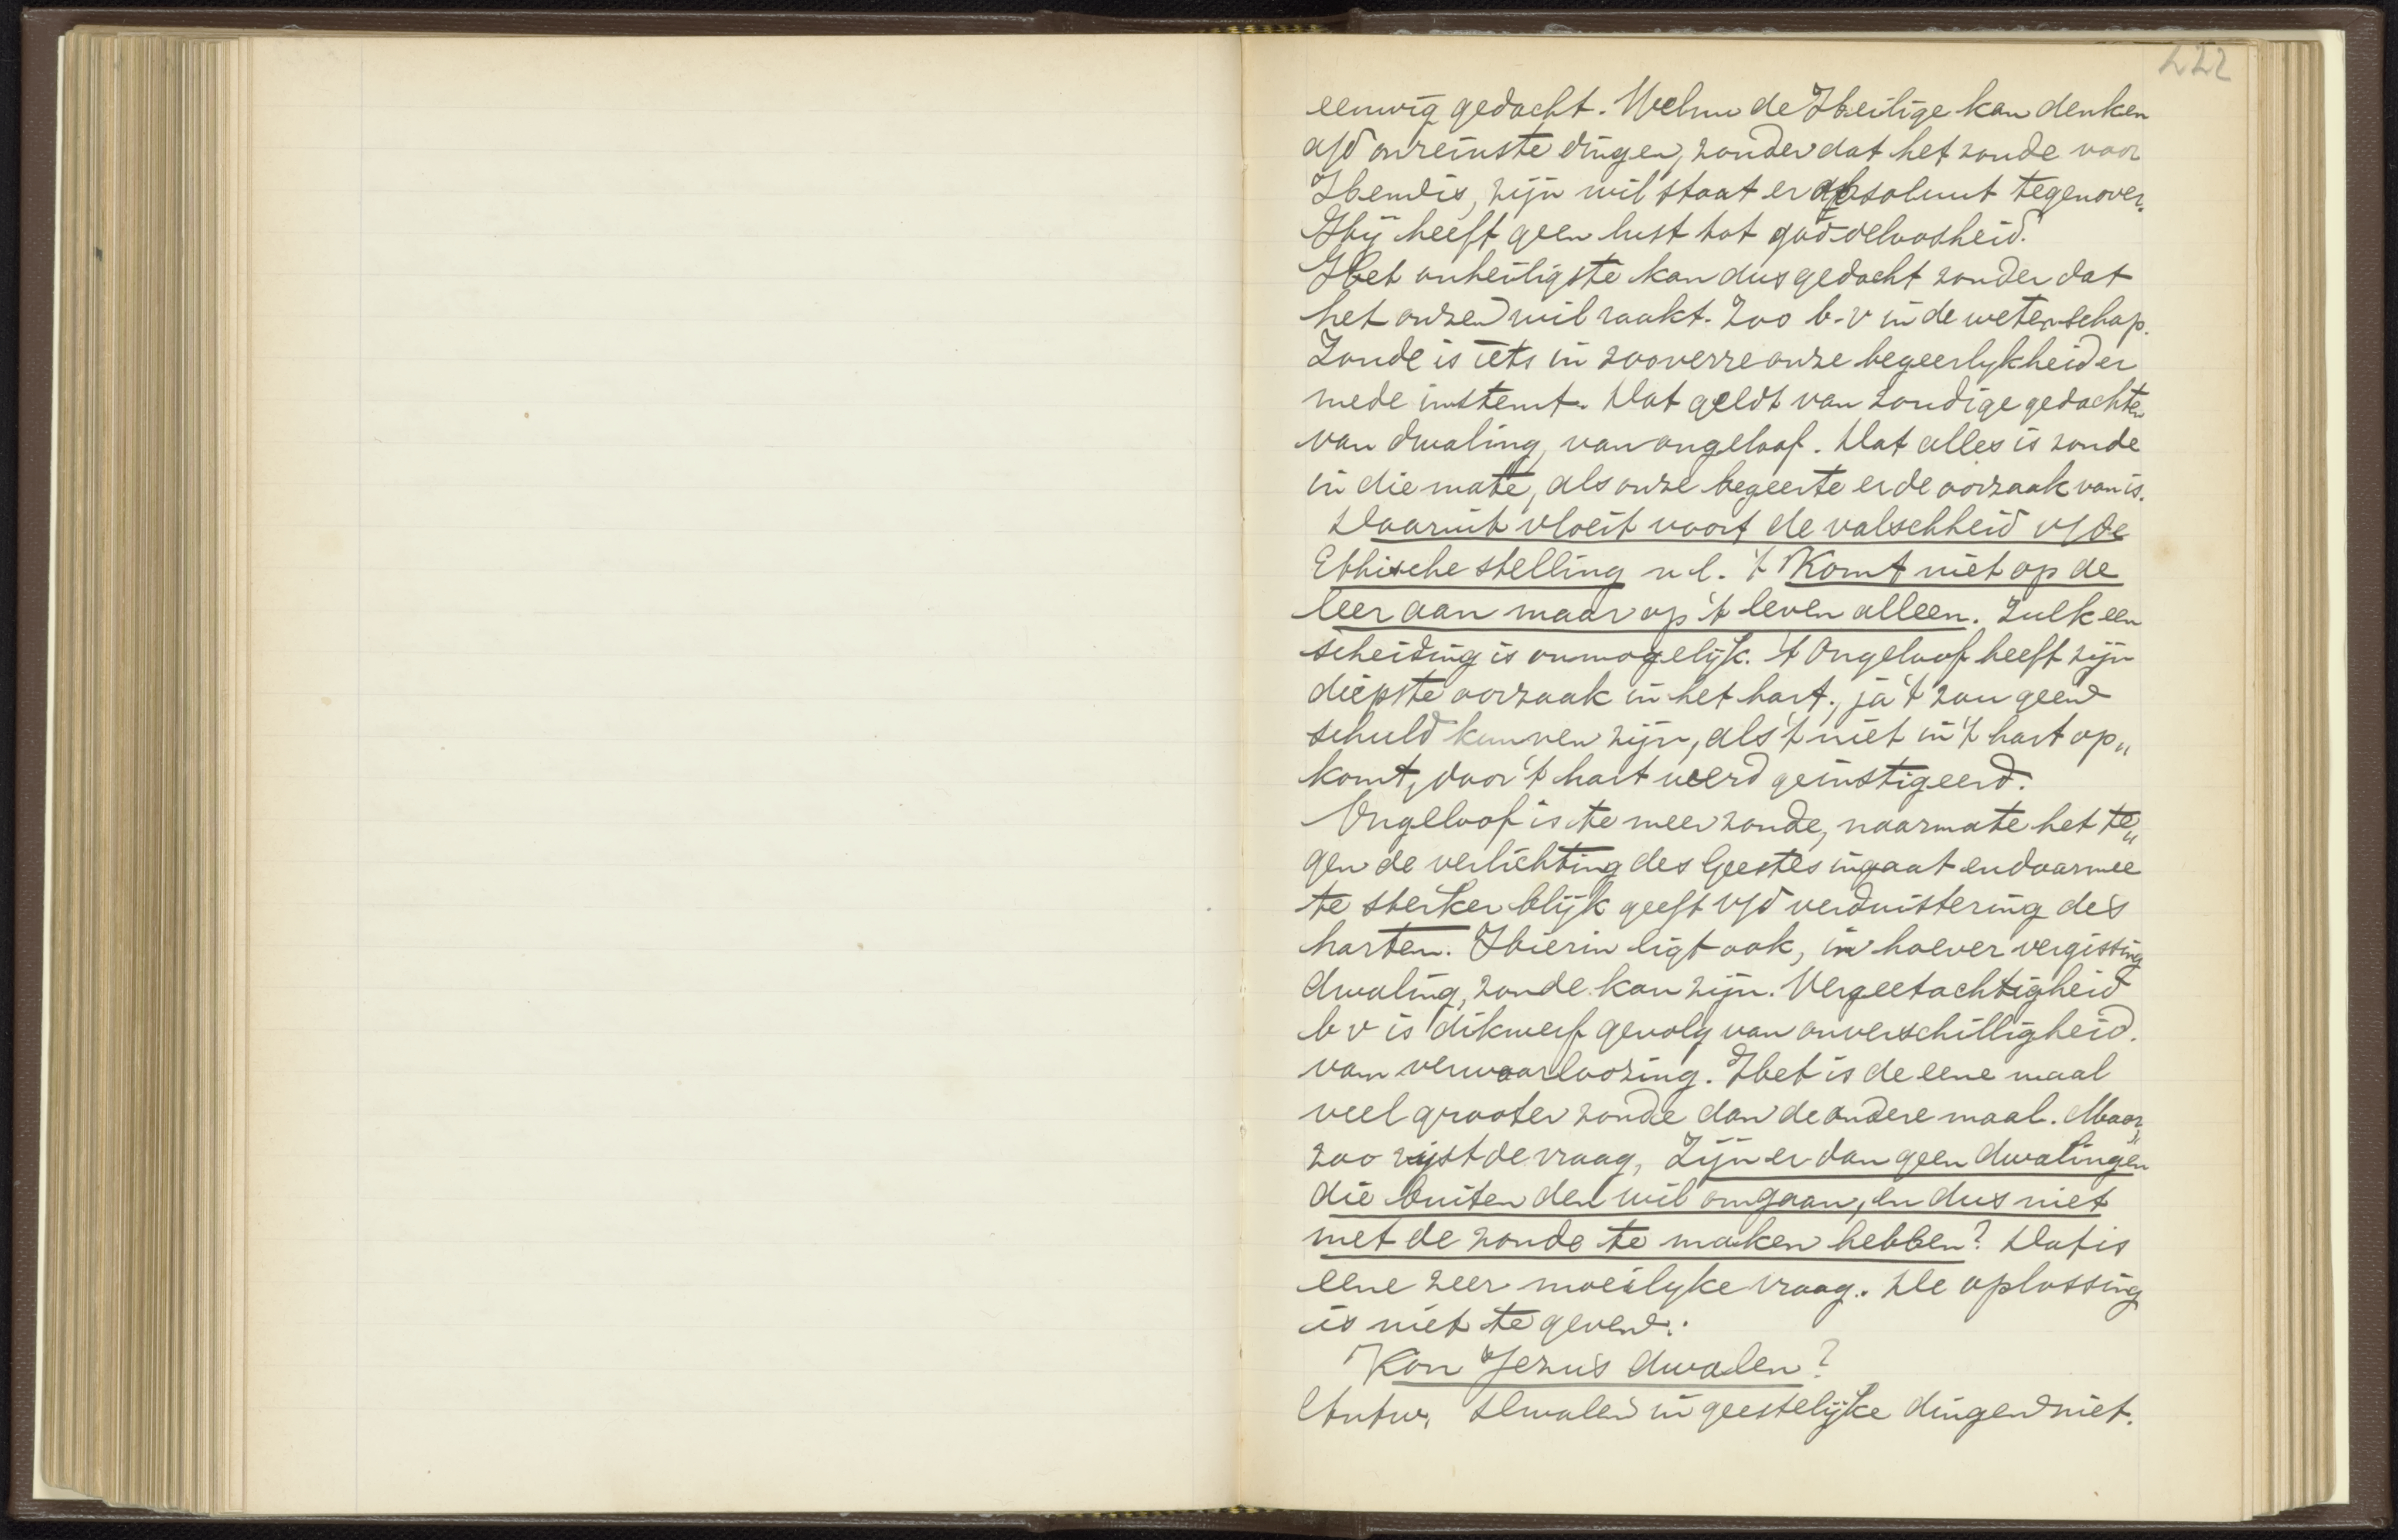 222
eeuwig gedacht. Welnu de Heilige kan denken
a/d onreinste dingen, zonder dat het zonde voor
Hem is, zijn wil staat er absoluut tegenover.
Hij heeft geen lust tot goddeloosheid.
Het onheiligste kan dus gedacht zonder dat
het onzen wil raakt. Zoo b.v in de wetenschap.
Zonde is iets in zooverre onze begeerlykheid er
mede instemt. Dat geldt van zondige gedachten
van dwaling, van ongeloof. Dat alles is zonde
in die mate, als onze begeerte er de oorzaak van is.
Daaruit vloeit voort de valschheid v/de
Ethische stelling n.l. 't Komt niet op de
leer aan maar op 't leven alleen. Zulk een
scheiding is onmogelijk. 't Ongeloof heeft zijn
diepste oorzaak in het hart, ja 't zou geen
schuld kunnen zijn, als 't niet in 't hart op„
komt, door 't hart weerd geinstigeerd.
Ongeloof is te meer zonde, naarmate het te„
gen de verlichting des Geestes ingaat en daarmee
te sterker blijk geeft v/d verduistering des
harten. Hierin ligt ook, in hoever vergissing
dwaling, zonde kan zijn. Vergeetachtigheid
b v is dikwerf gevolg van onverschilligheid.
van verwaarloozing. Het is de eene maal
veel grooter zonde dan de andere maal. Maar
zoo rijst de vraag, Zijn er dan geen dwalingen
die buiten den wil omgaan, en dus niet
met de zonde te maken hebben? Dat is
eene zeer moeilyke vraag. De oplossing
is niet te geven.
Kon Jezus dwalen?
Antw. Dwalen in geestelijke dingen niet.